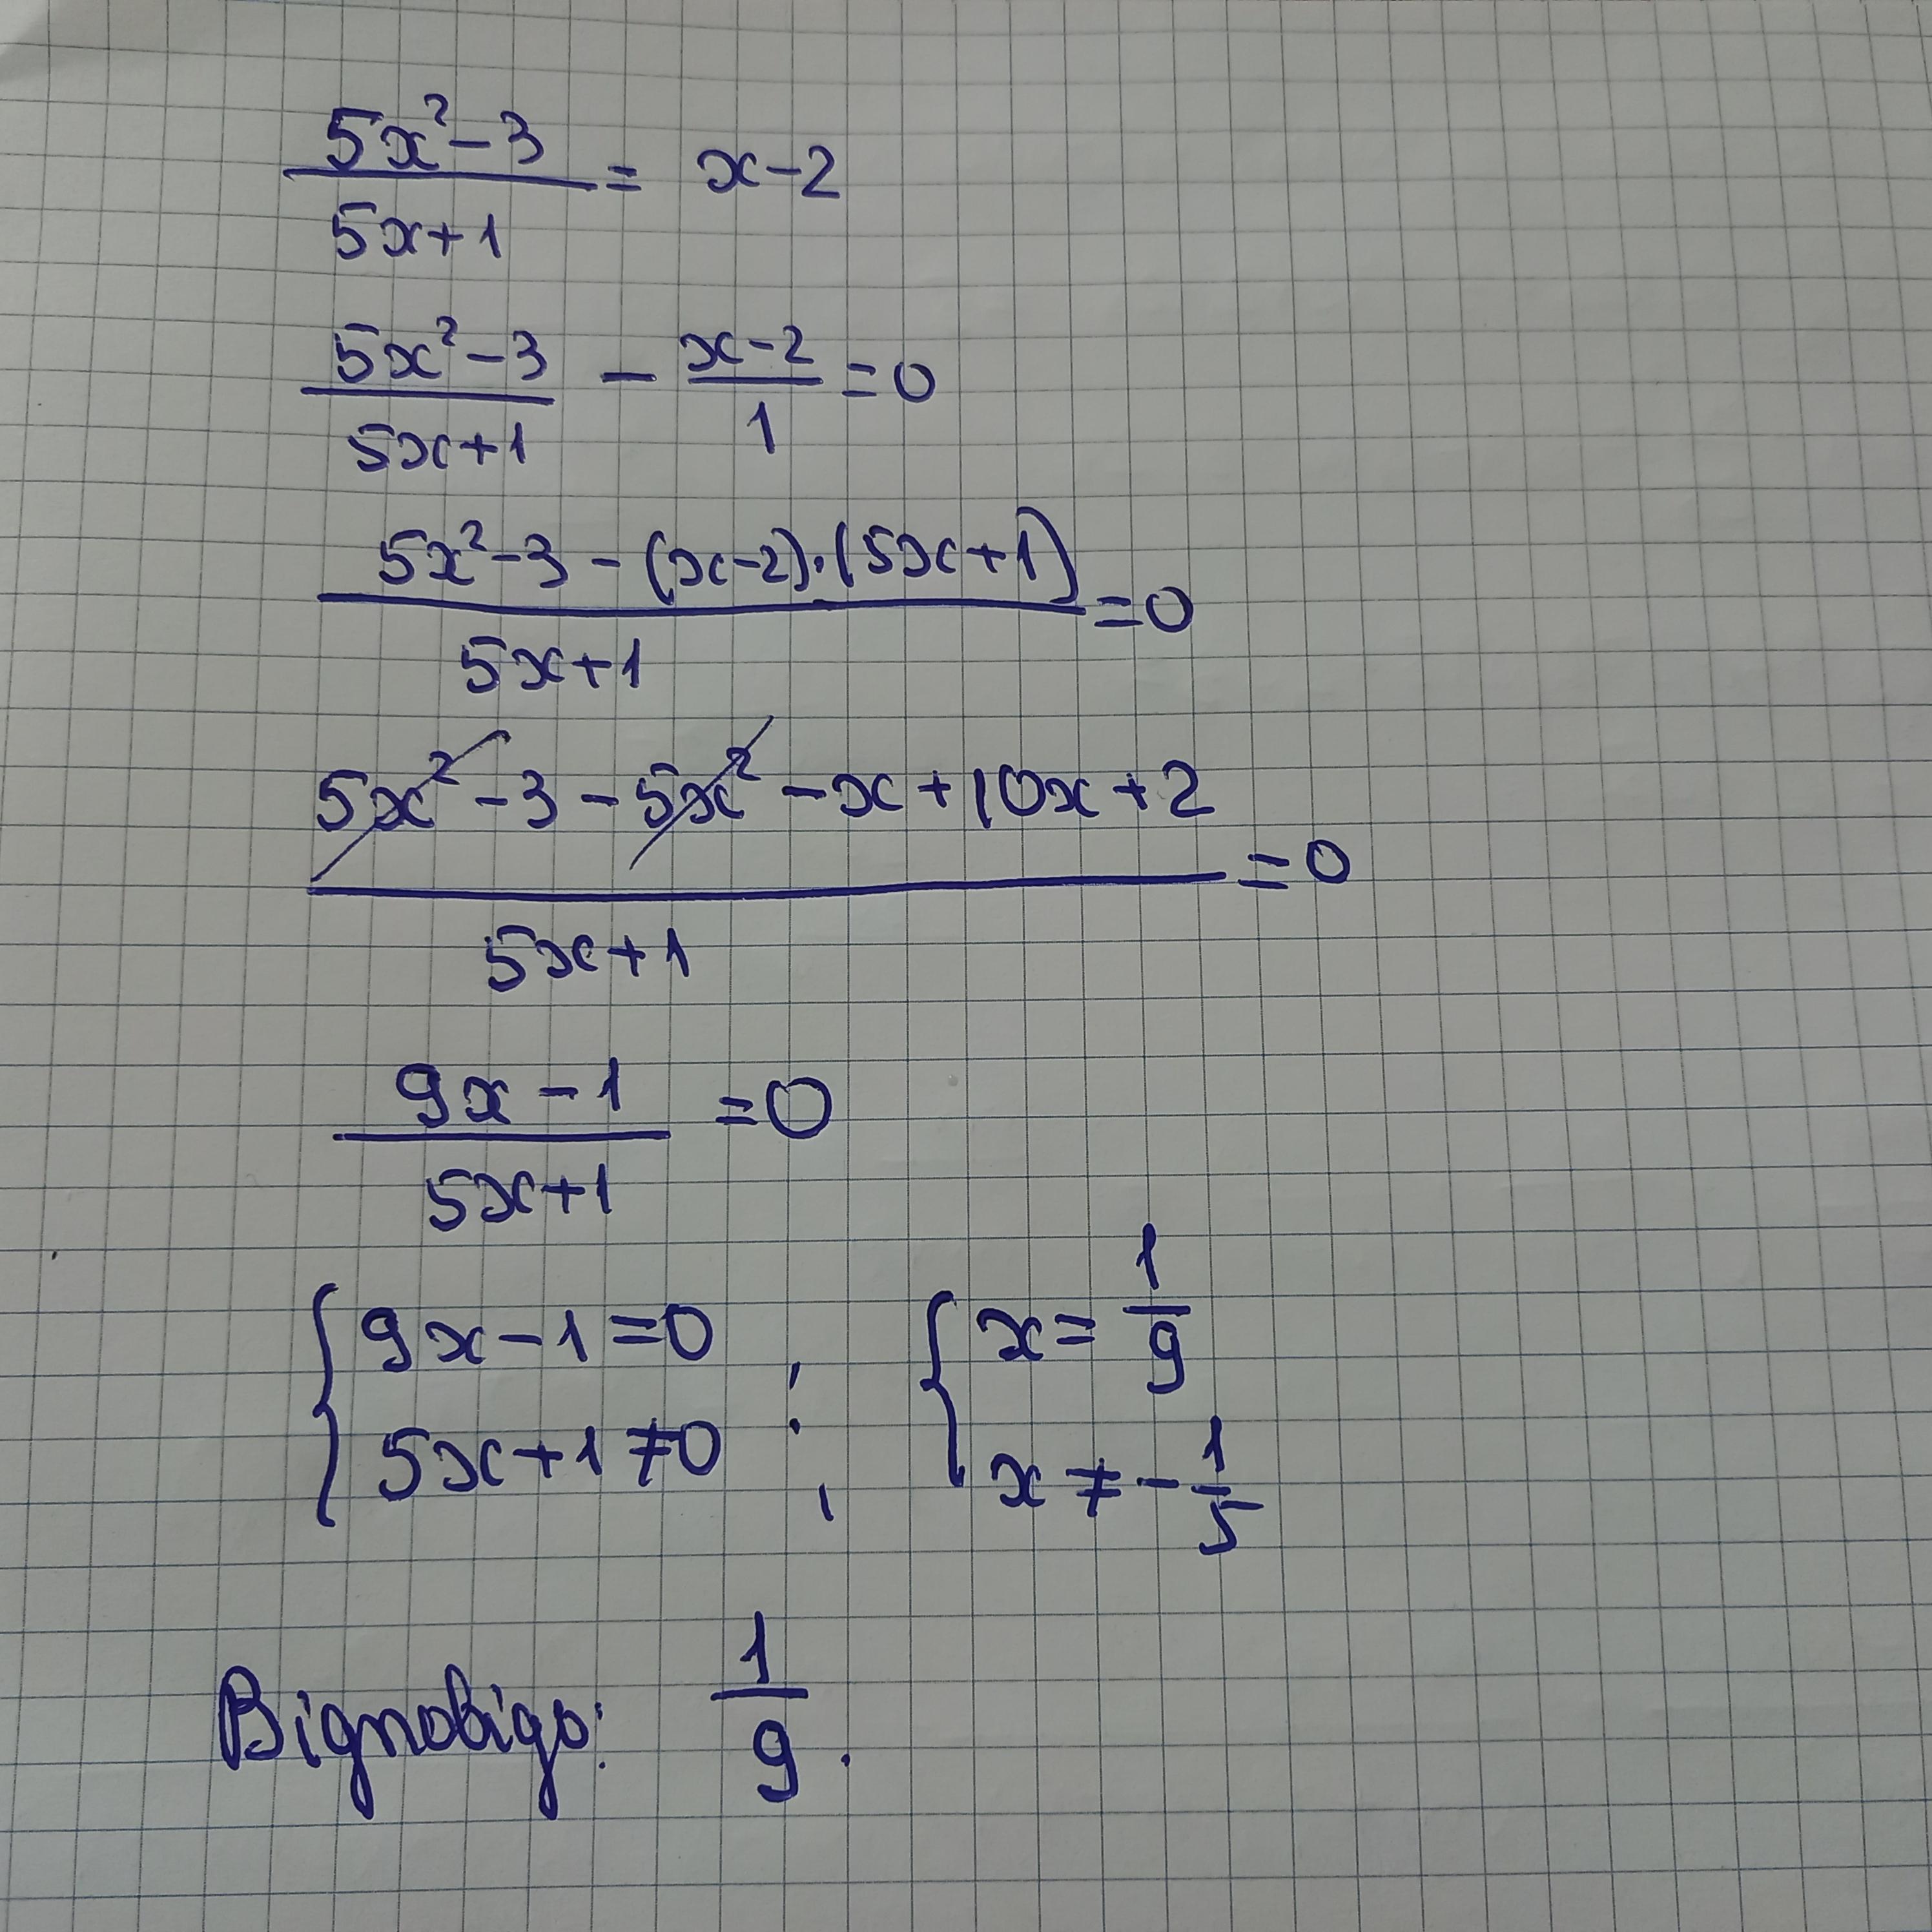 (5x²-3)/(5x+1) = x-2
(5x²-3)/(5x+1) - (x-2)/1 = 0
(5x²-3-(x-2)·(5x+1))/(5x+1) = 0
(5x²-3-5x²-x+10x+2)/(5x+1) = 0
(9x-1)/(5x+1) = 0
{ 9x-1=0 ; { x=1/9
5x+1≠0 ; x≠-1/5
Відповідь: 1/9.